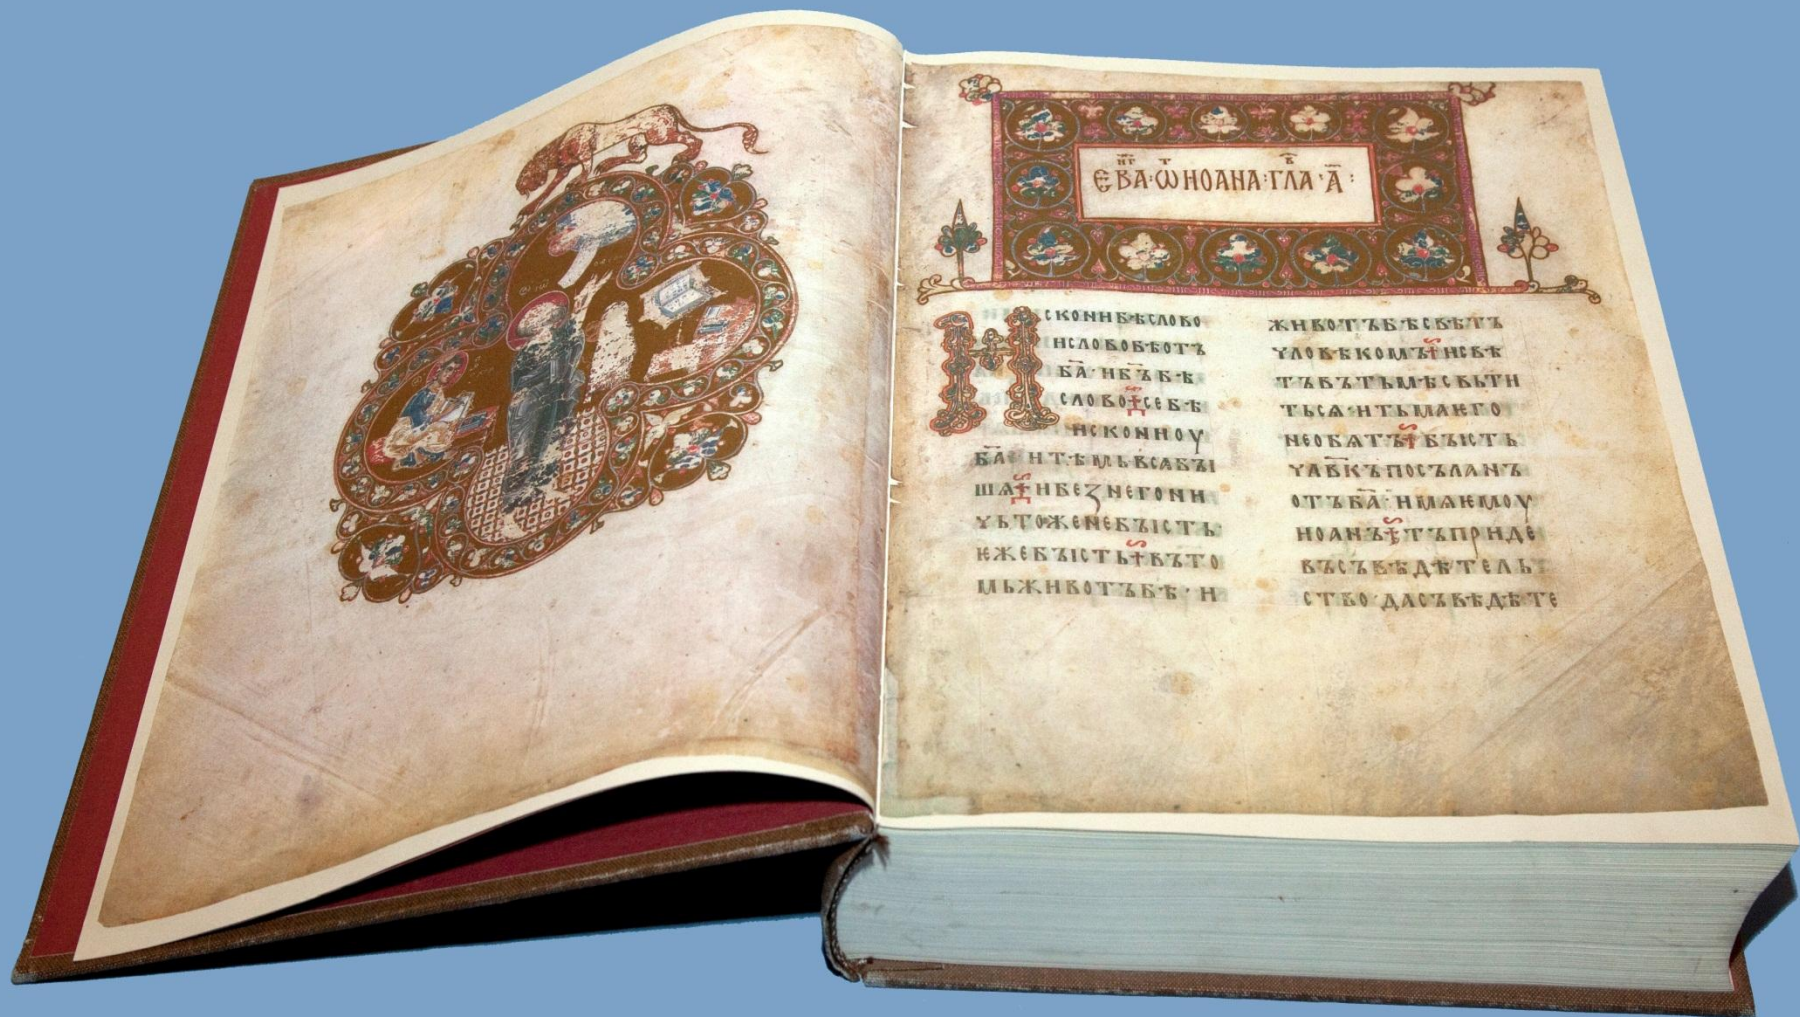 ЕВАнг҃·Ѡт҃ИОАНА·ГЛАв҃·А҃:
Искони бѣ слово
и слово бѣ отъ
б҃а· и б҃ъ бѣ
слово се бѣ
искони оу
б҃а и тѣмь вса бꙑ
шѧ и беꙁ него ни
чьто же не бꙑсть
ѥже бꙑсть въ то
мь животъ бѣ· и
животъ бѣ свѣтъ
чловѣкомъ и свѣ
тъ въ тьмѣ свьти
ться· и тьма ѥго
не обѧтъ бꙑсть
чл҃вкъ посъланъ
отъ б҃а· имѧ ѥмоу
иоанъ тъ приде
въ съвѣдѣтель
ство· да съвѣдѣте